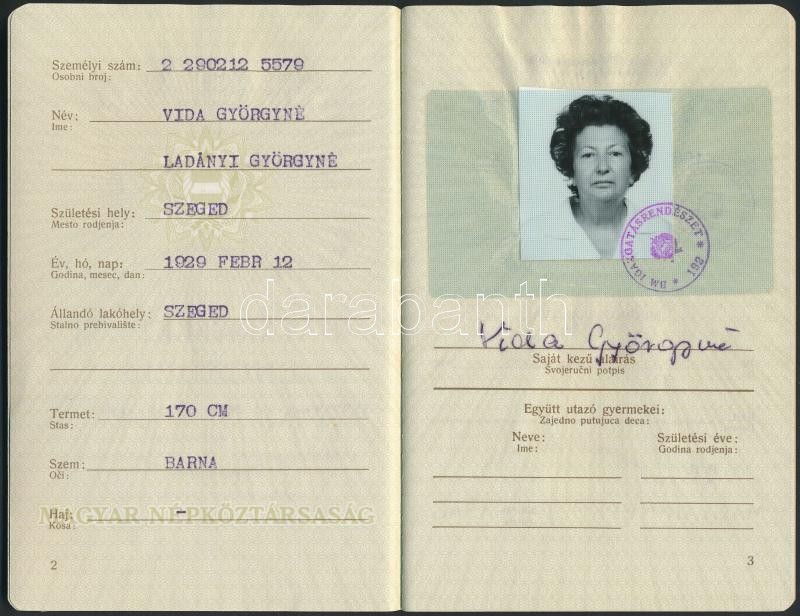 Személyi szám: 2 290212 5579
Osobni broj:
Név: VIDA GYÖRGYNÉ
Ime:
LADÁNYI GYÖRGYNÉ
Születési hely: SZEGED
Mesto rodjenja:
Év, hó, nap: 1929 FEBR 12
Godina, mesec, dan:
Állandó lakóhely: SZEGED
Stalno prebivalište:
Termet: 170 CM
Stas:
Szem: BARNA
Oči:
Haj: -
Kosa:
MAGYAR NÉPKÖZTÁRSASÁG
2
BM IGAZGATÁSRENDÉSZET * 192 *
Vida Györgyné
Saját kezű aláírás
Svojeručni potpis
Együtt utazó gyermekei:
Zajedno putujuca deca:
Neve: Születési éve:
Ime: Godina rodjenja:
3
darabanth.com